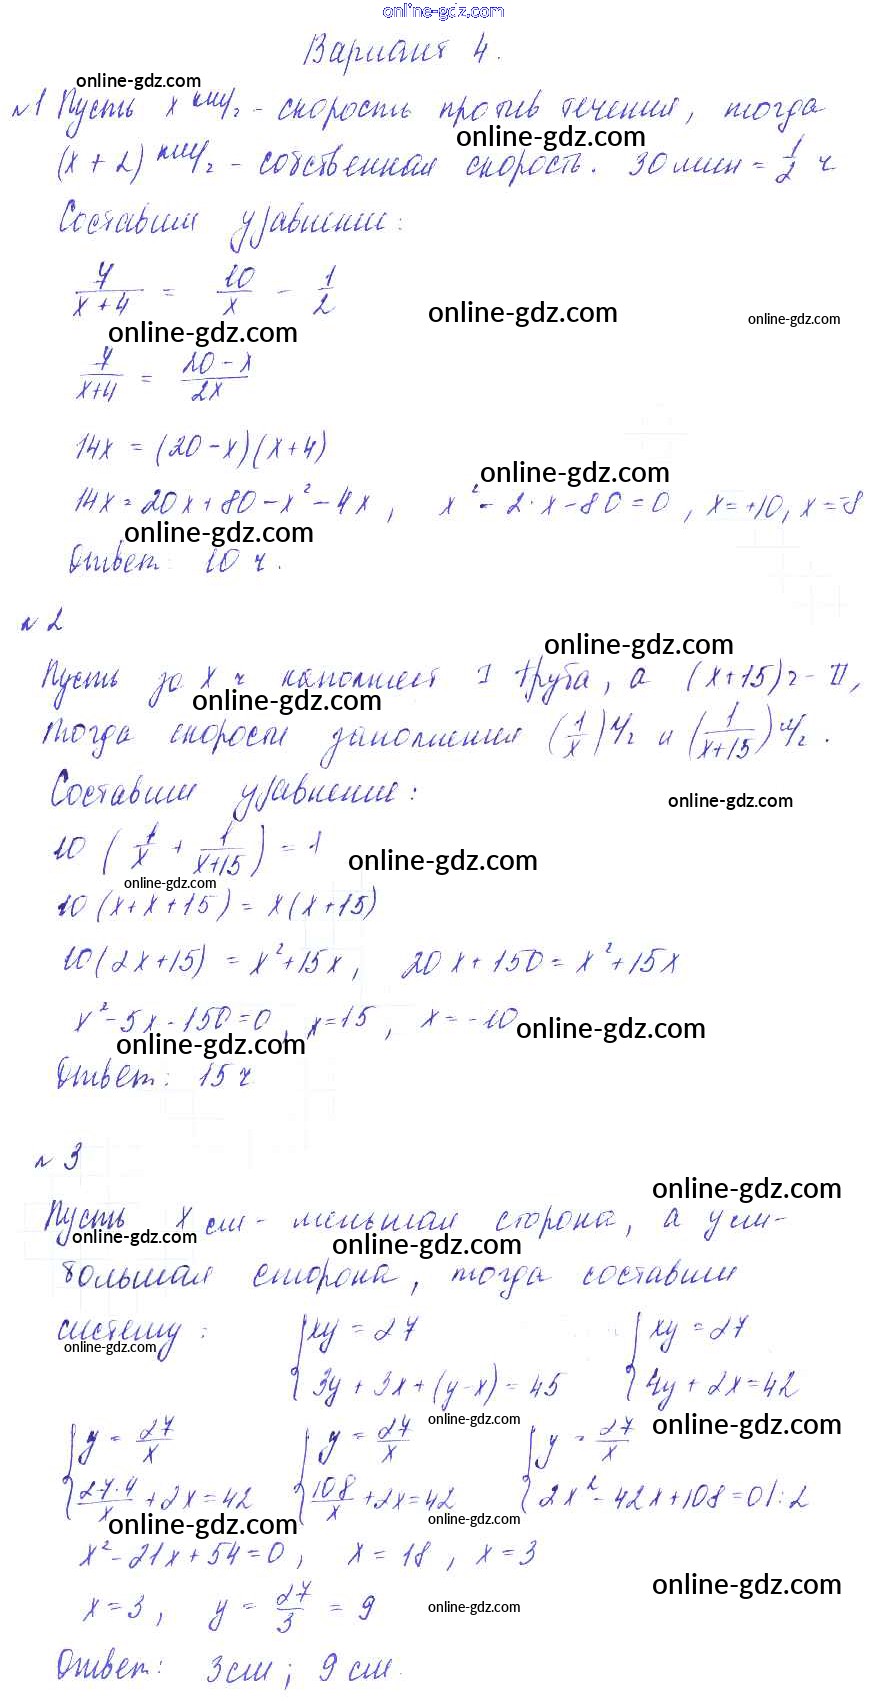 online-gdz.com
Вариант 4.
online-gdz.com
№1 Пусть x км/ч - скорость против течения, тогда
online-gdz.com
(x + 2) км/ч - собственная скорость. 30 мин = 1/2 ч
Составим уравнение:
7/(x + 4) = 10/x - 1/2
online-gdz.com
online-gdz.com
online-gdz.com
7/(x+4) = (20 - x)/2x
14x = (20 - x)(x + 4)
online-gdz.com
14x = 20x + 80 - x² - 4x, x² - 2·x - 80 = 0, x = +10, x = -8
online-gdz.com
Ответ: 10 ч.
№2
online-gdz.com
Пусть за x ч наполняет I труба, а (x+15) ч - II,
online-gdz.com
тогда скорости заполнения (1/x) ч/ч и (1/(x+15)) ч/ч.
Составим уравнение:
online-gdz.com
10 (1/x + 1/(x+15)) = 1
online-gdz.com
online-gdz.com
10 (x + x + 15) = x(x + 15)
10(2x + 15) = x² + 15x, 20x + 150 = x² + 15x
x² - 5x - 150 = 0, x = 15, x = -10
online-gdz.com
online-gdz.com
Ответ: 15 ч
№3
online-gdz.com
Пусть x см - меньшая сторона, а y см -
online-gdz.com
online-gdz.com
большая сторона, тогда составим
систему: {xy = 27 {xy = 27
online-gdz.com
{3y + 3x + (y - x) = 45 {4y + 2x = 42
online-gdz.com
online-gdz.com
{y = 27/x {y = 27/x {y = 27/x
{27·4/x + 2x = 42 {108/x + 2x = 42 {2x² - 42x + 108 = 0 |:2
online-gdz.com
online-gdz.com
x² - 21x + 54 = 0, x = 18, x = 3
online-gdz.com
x = 3, y = 27/3 = 9
online-gdz.com
Ответ: 3 см; 9 см.